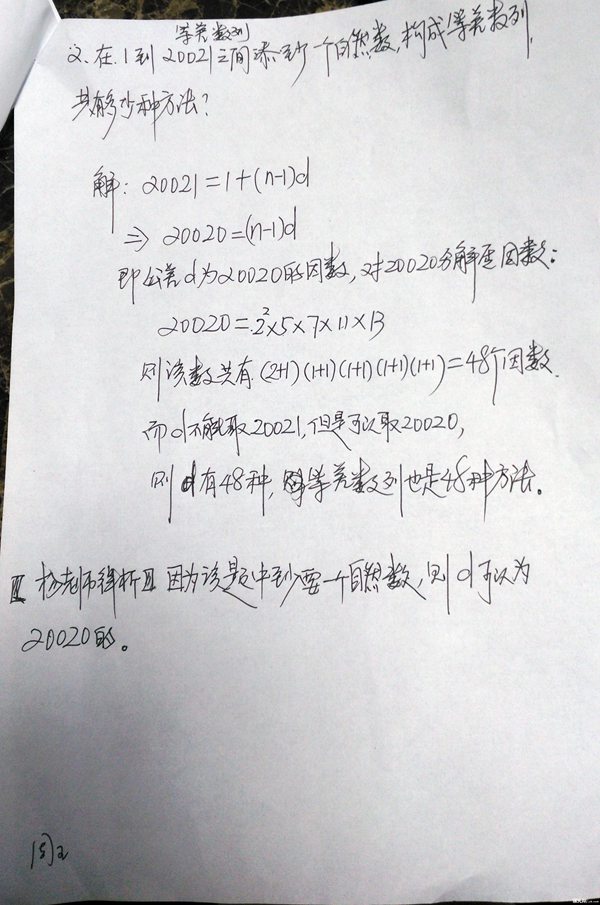 等差数列
2. 在1到20021之间添至少一个自然数,构成等差数列,
共有多少种方法?
解: 20021=1+(n-1)d
⇒ 20020=(n-1)d
即公差d为20020的因数,对20020分解质因数:
20020=2²×5×7×11×13
则该数共有(2+1)(1+1)(1+1)(1+1)(1+1)=48个因数.
而d不能取20021,但是可以取20020,
则d有48种, 等差数列也是48种方法。
杨老师 因为该题中至少要一个自然数,则d可以为
20020的。